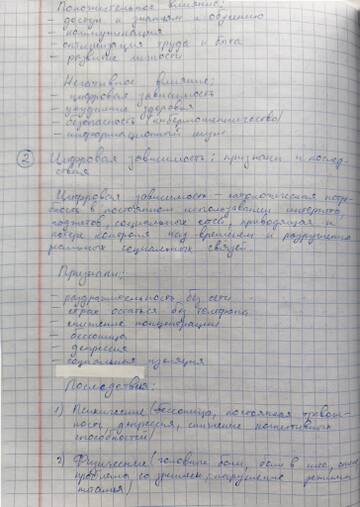 Положительное влияние:
- доступ к знаниям и обучению
- коммуникация
- оптимизация труда и быта
- развитие личности
Негативное влияние:
- цифровая зависимость
- ухудшение здоровья
- безопасность (кибермошенничество)
- информационный шум
2 Цифровая зависимость: признаки и послед-
ствия
Цифровая зависимость - патологическая потре-
бность в постоянном использовании интернета,
гаджетов, социальных сетей приводящая к
потере контроля над временем и разрушению
реальных социальных связей.
Признаки:
- раздражительность без сети
- страх остаться без телефона
- снижение концентрации
- бессоница
- депрессия
- социальная изоляция
Последствия:
1) Психические (бессоница, постоянная тревож-
ность, депрессия, снижение когнитивных
способностей)
2) Физические (головные боли, боли в шее,
проблемы со зрением, нарушение режима
питания)